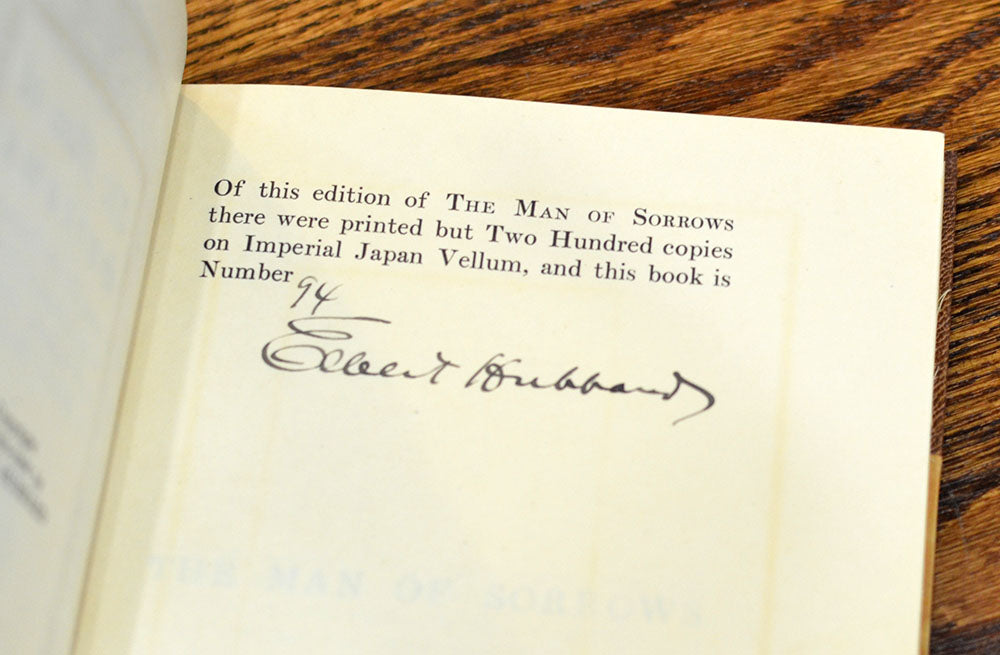 Of this edition of THE MAN OF SORROWS
there were printed but Two Hundred copies
on Imperial Japan Vellum, and this book is
Number 94
Elbert Hubbard
THE MAN OF SORROWS